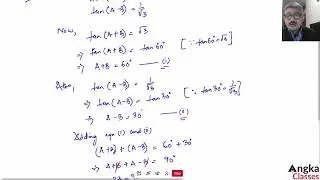 tan(A-B) = 1/√3
Now, tan(A+B) = √3
⇒ tan(A+B) = tan60° [∵ tan60° = √3]
⇒ A+B = 60° — (i)
tan(A-B) = 1/√3
⇒ tan(A-B) = tan30° [∵ tan30° = 1/√3]
⇒ A-B = 30° — (ii)
Adding eqn (i) and (ii)
(A+B) + (A-B) = 60° + 30°
⇒ A+B + A-B = 90°
Angka
Classes